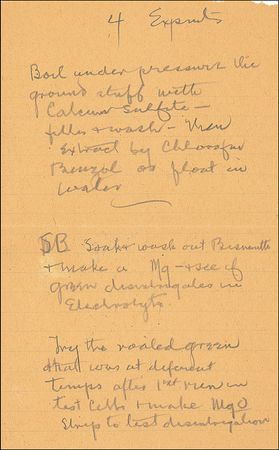 4 Expmts
Boil under pressure the
ground stuff with
Calcium Sulfite —
filter & wash — then
Extract by Chlorofm
Benzol or float in
water
5B Soak & wash out Bismuth
& make a Mg — & see if
green disintegrates in
Electrolyte.
Try the green
that was at diferent
temps after 1st run in
test Cells & make MgO
Strips to test disintegration